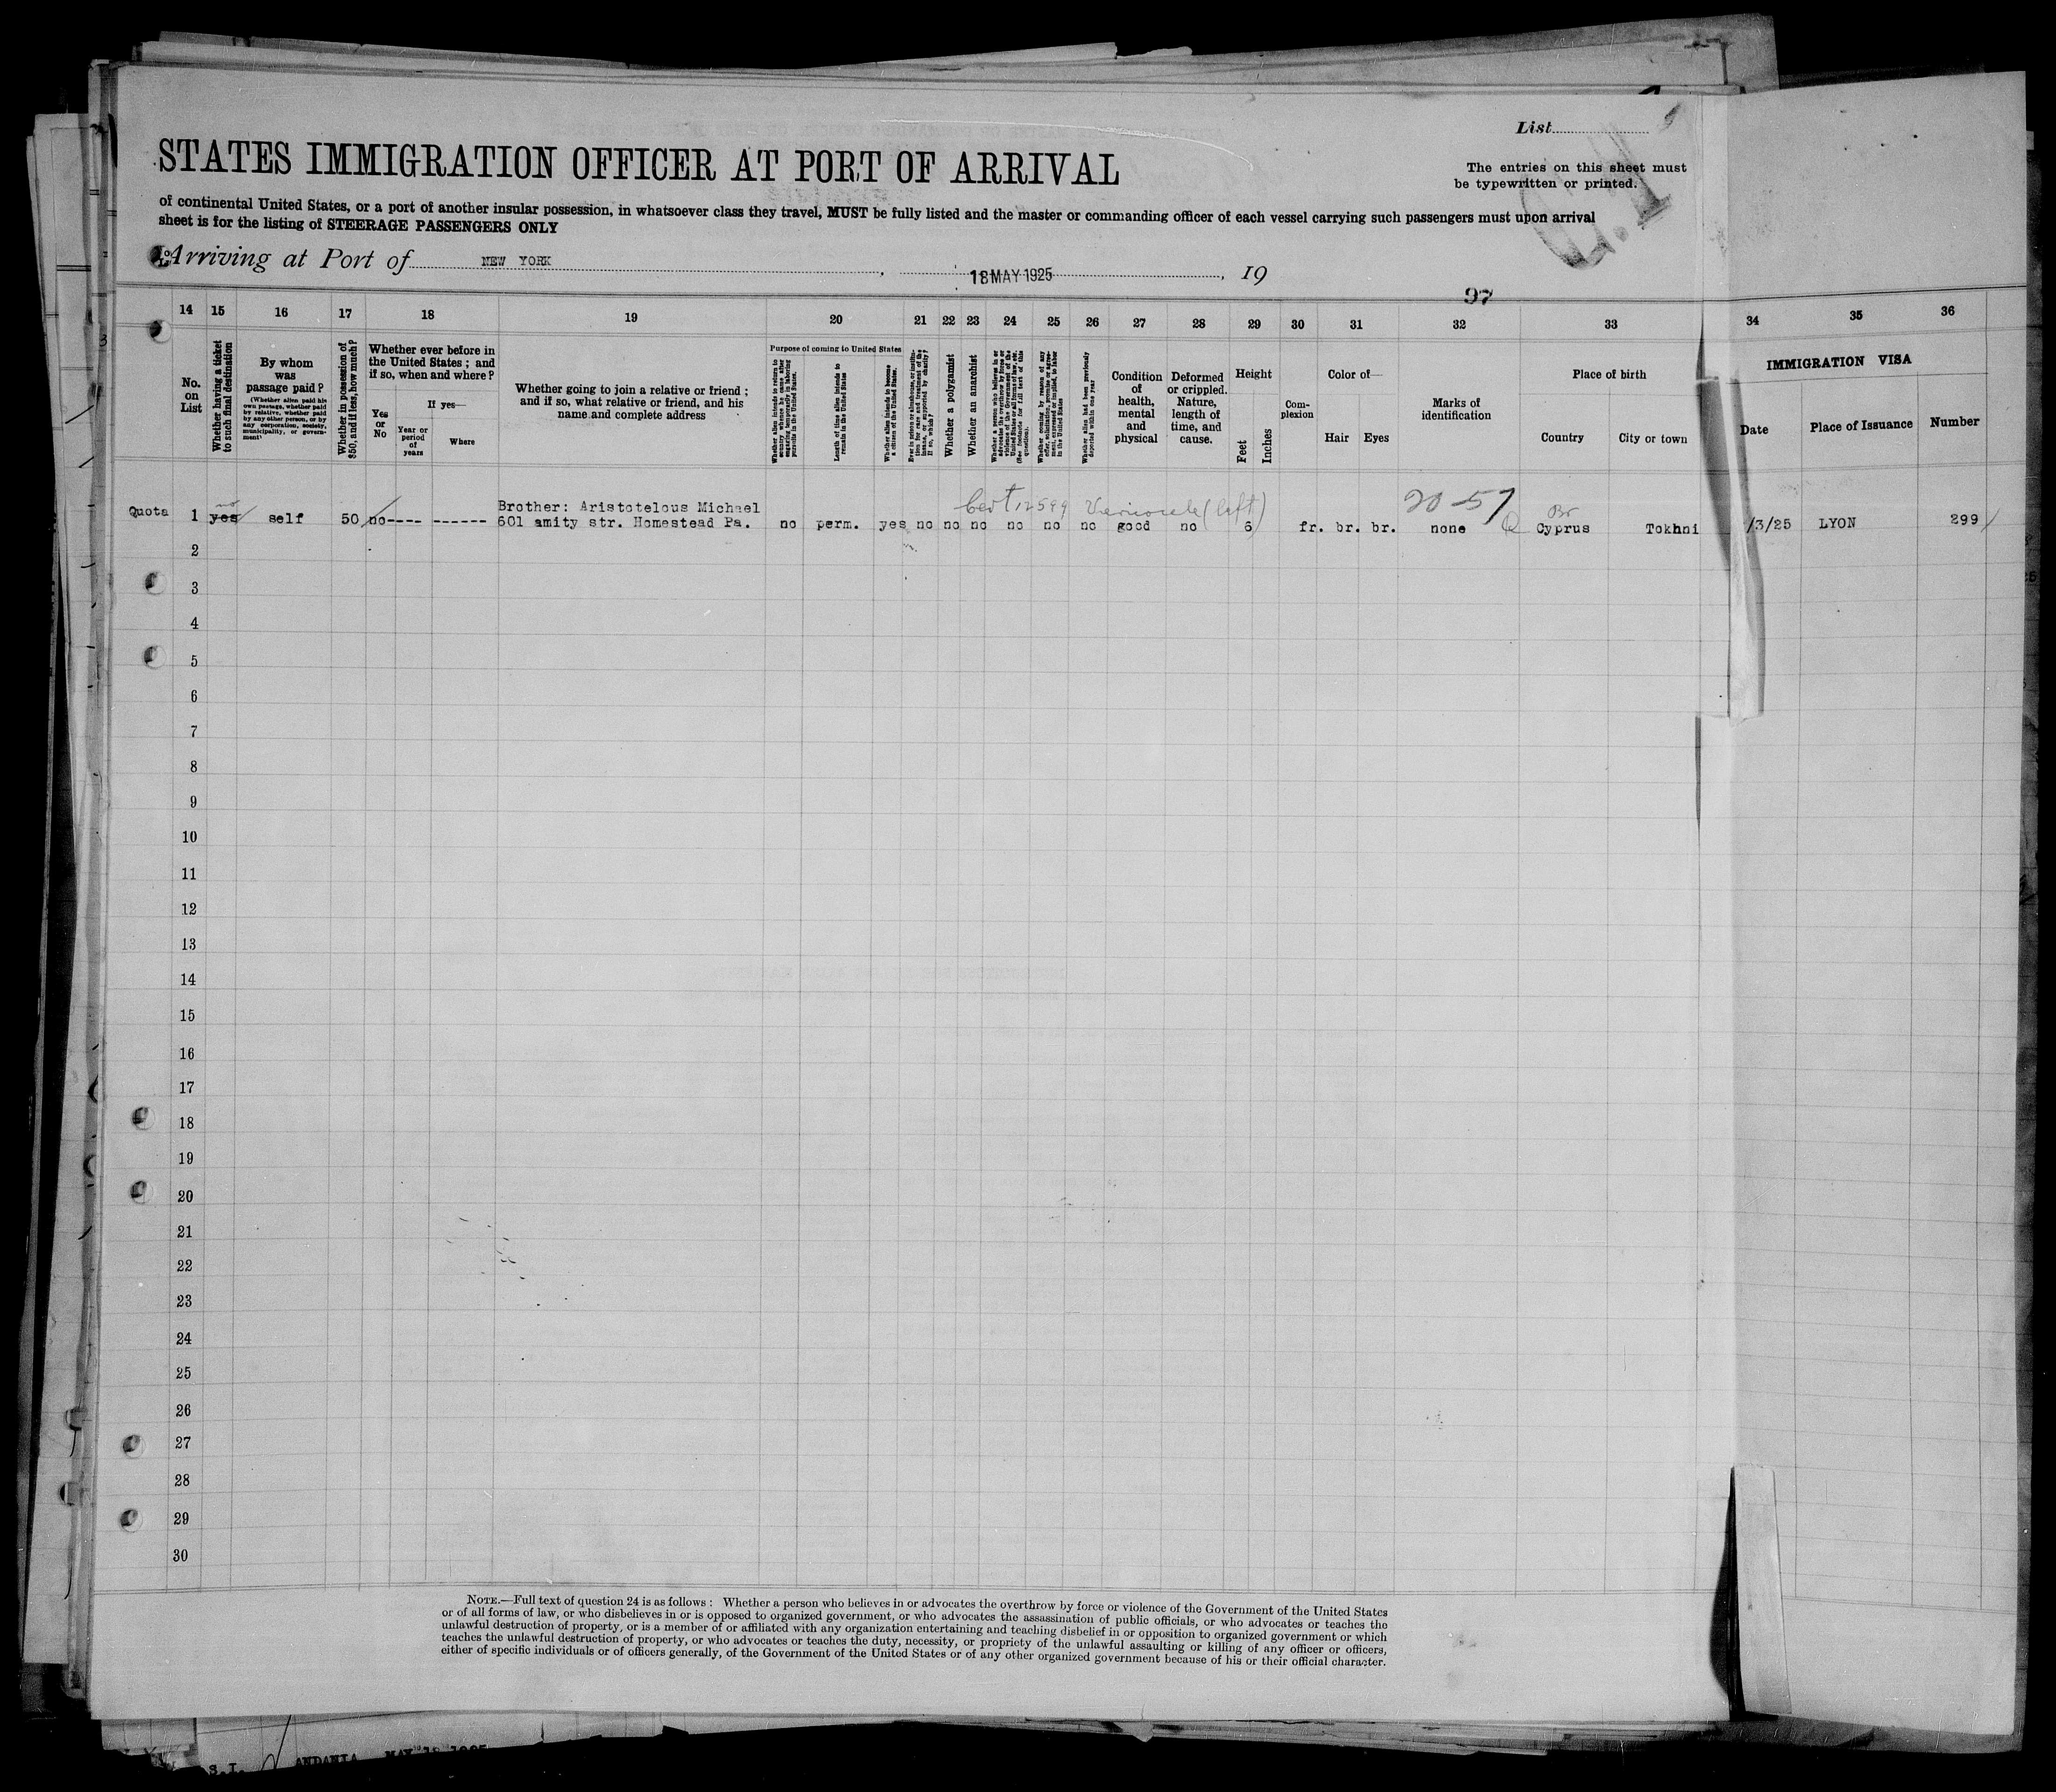 List
STATES IMMIGRATION OFFICER AT PORT OF ARRIVAL
The entries on this sheet must
be typewritten or printed.
of continental United States, or a port of another insular possession, in whatsoever class they travel, MUST be fully listed and the master or commanding officer of each vessel carrying such passengers must upon arrival
sheet is for the listing of STEERAGE PASSENGERS ONLY
Arriving at Port of NEW YORK, 18 MAY 1925, 19
97
14 15 16 17 18 19 20 21 22 23 24 25 26 27 28 29 30 31 32 33 34 35 36
No. on List
Whether having a ticket to such final destination
By whom was passage paid?
(Whether alien paid his own passage, whether paid by relative, whether paid by any other person, or by any corporation, society, municipality, or government)
Whether in possession of $50, and if less, how much?
Whether ever before in the United States; and if so, when and where?
Yes or No
If yes—
Year or period of years
Where
Whether going to join a relative or friend; and if so, what relative or friend, and his name and complete address
Purpose of coming to United States
Whether alien intends to return to country whence he came after engaging temporarily in laboring pursuits in the United States.
Length of time alien intends to remain in the United States
Whether alien intends to become a citizen of the United States.
Whether a polygamist
Whether an anarchist
Condition of health, mental and physical
Deformed or crippled. Nature, length of time, and cause.
Height
Feet
Inches
Complexion
Color of—
Hair
Eyes
Marks of identification
Place of birth
Country
City or town
IMMIGRATION VISA
Date
Place of Issuance
Number
Cert 12599 Varicocele (left) 20-57
no Br
Quota 1 yes self 50 no---- ------ Brother: Aristotelous Michael
601 amity str. Homestead Pa. no perm. yes no no no no no no good no 6 fr. br. br. none Q Cyprus Tokhni /3/25 LYON 299
2
3
4
5
6
7
8
9
10
11
12
13
14
15
16
17
18
19
20
21
22
23
24
25
26
27
28
29
30
NOTE.—Full text of question 24 is as follows: Whether a person who believes in or advocates the overthrow by force or violence of the Government of the United States
or of all forms of law, or who disbelieves in or is opposed to organized government, or who advocates the assassination of public officials, or who advocates or teaches the
unlawful destruction of property, or is a member of or affiliated with any organization entertaining and teaching disbelief in or opposition to organized government or which
teaches the unlawful destruction of property, or who advocates or teaches the duty, necessity, or propriety of the unlawful assaulting or killing of any officer or officers,
either of specific individuals or of officers generally, of the Government of the United States or of any other organized government because of his or their official character.
S.I. ANDANIA MAY 18 1925